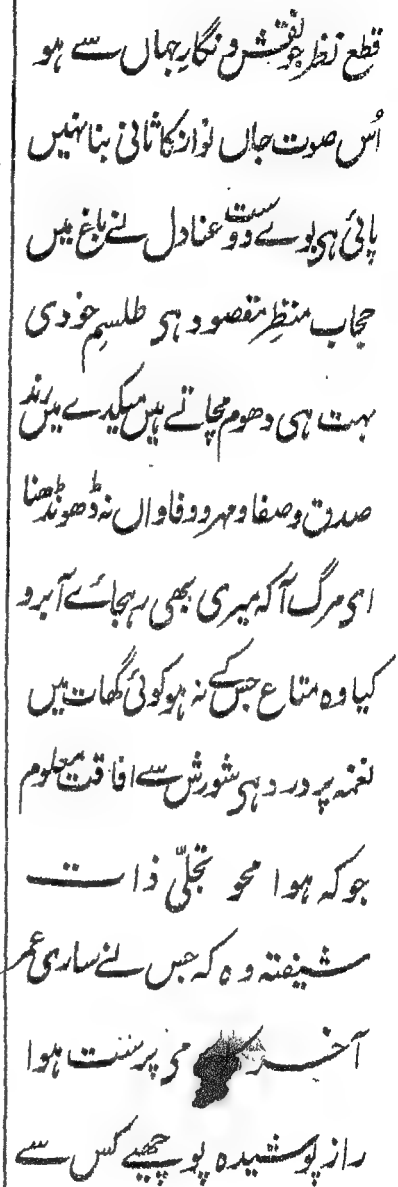 قطع نظر جو نقش و نگارِ جہاں سے ہو
اُس صوت جاں نواز کا ثانی بنا نہیں
پائی ہی بوے دوست عنادل نے باغ میں
حجاب منظرِ مقصود ہی طلسمِ خودی
بہت ہی دھوم مچاتے ہیں میکدے میں رند
صدق و صفا و مہر و وفا واں نہ ڈھونڈھنا
ای مرگ آ کہ میری بھی رہجاے آبرو
کیا وہ متاع جس کے نہ ہو کوئی گھات میں
نغمہ پر درد ہی شورش سے افاقت معلوم
جو کہ ہوا محو تجلّی ذات
شیفتہ وہ کہ جس نے ساری عمر
آخر می پرست ہوا
راز پوشیدہ پوچھیے کس سے